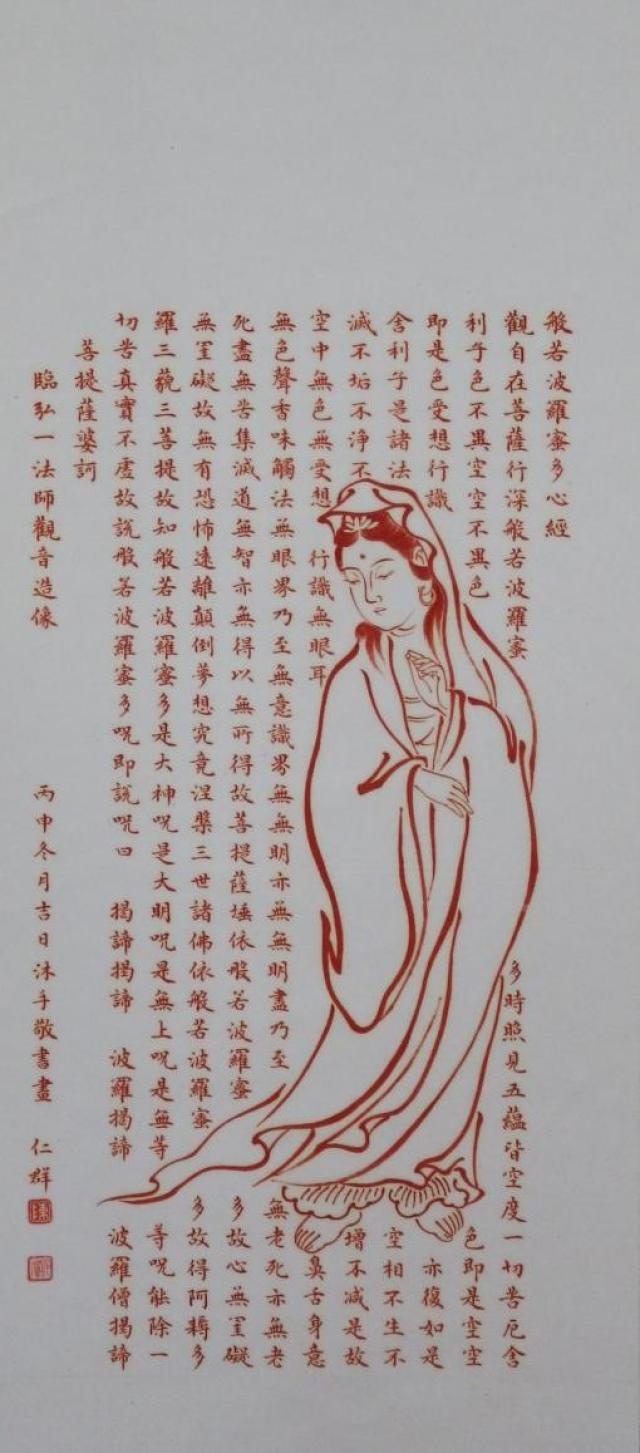 般若波羅蜜多心經
觀自在菩薩行深般若波羅蜜多時照見五蘊皆空度一切苦厄舍
利子色不異空空不異色色即是空空
即是色受想行識亦復如是
舍利子是諸法空相不生不
滅不垢不淨不增不減是故
空中無色無受想行識無眼耳鼻舌身意
無色聲香味觸法無眼界乃至無意識界無無明亦無無明盡乃至無老死亦無老
死盡無苦集滅道無智亦無得以無所得故菩提薩埵依般若波羅蜜多故心無罣礙
無罣礙故無有恐怖遠離顛倒夢想究竟涅槃三世諸佛依般若波羅蜜多故得阿耨多
羅三藐三菩提故知般若波羅蜜多是大神咒是大明咒是無上咒是無等等咒能除一
切苦真實不虛故說般若波羅蜜多咒即說咒曰 揭諦揭諦 波羅揭諦 波羅僧揭諦
菩提薩婆訶
臨弘一法師觀音造像
丙申冬月吉日沐手敬書畫 仁群